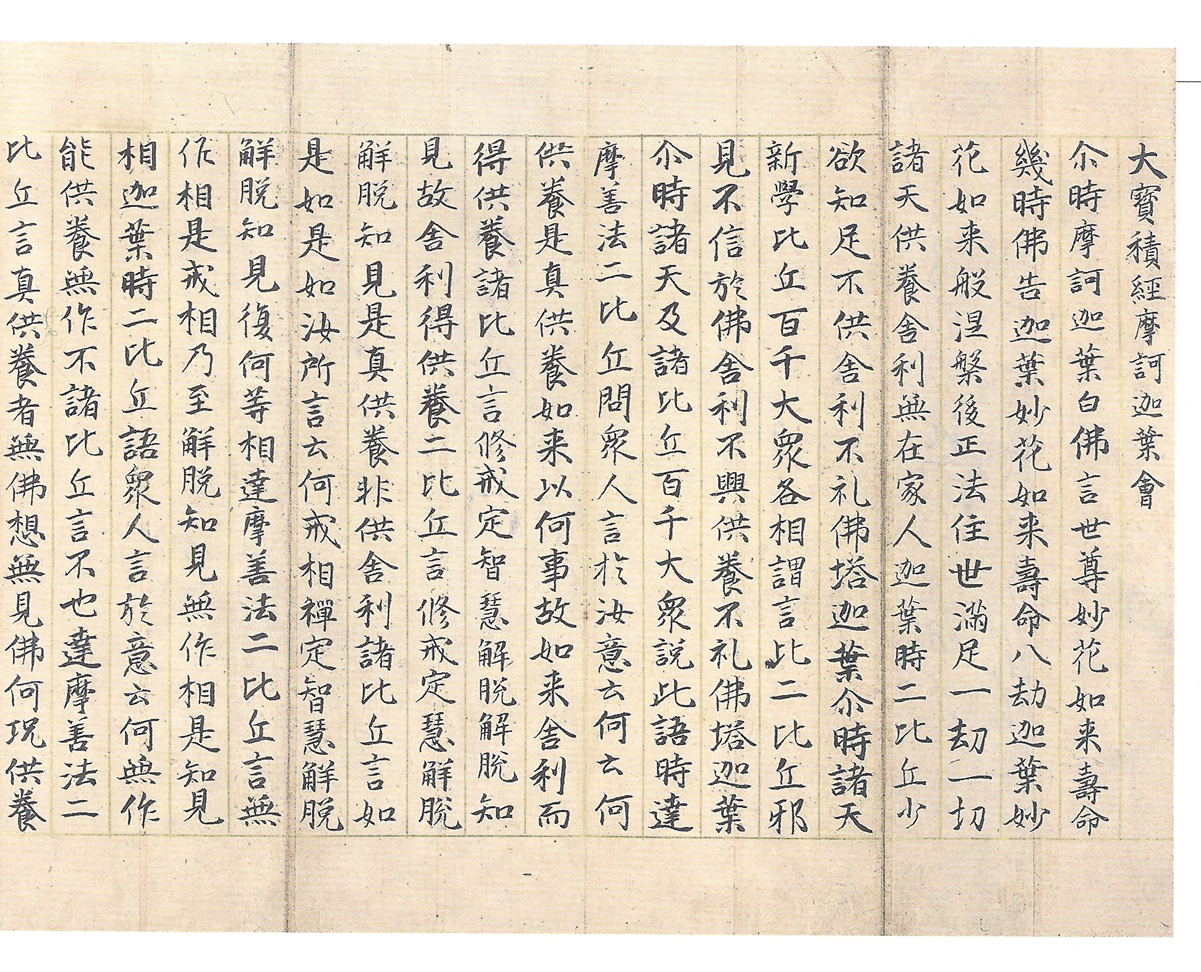 大寳積經摩訶迦葉會
尒時摩訶迦葉白佛言世尊妙花如来壽命
幾時佛告迦葉妙花如来壽命八劫迦葉妙
花如来般涅槃後正法住世滿足一劫一切
諸天供養舍利無在家人迦葉時二比丘少
欲知足不供舍利不礼佛塔迦葉尒時諸天
新學比丘百千大衆各相謂言此二比丘邪
見不信於佛舍利不興供養不礼佛塔迦葉
尒時諸天及諸比丘百千大衆説此語時達
摩善法二比丘問衆人言於汝意云何云何
供養是真供養如来以何事故如来舍利而
得供養諸比丘言修戒定智慧解脱解脱知
見故舍利得供養二比丘言修戒定慧解脱
解脱知見是真供養非供舍利諸比丘言如
是如是如汝所言云何戒相禪定智慧解脱
解脱知見復何等相達摩善法二比丘言無
作相是戒相乃至解脱知見無作相是知見
相迦葉時二比丘語衆人言於意云何無作
能供養無作不諸比丘言不也達摩善法二
比丘言真供養者無佛想無見佛何况供養